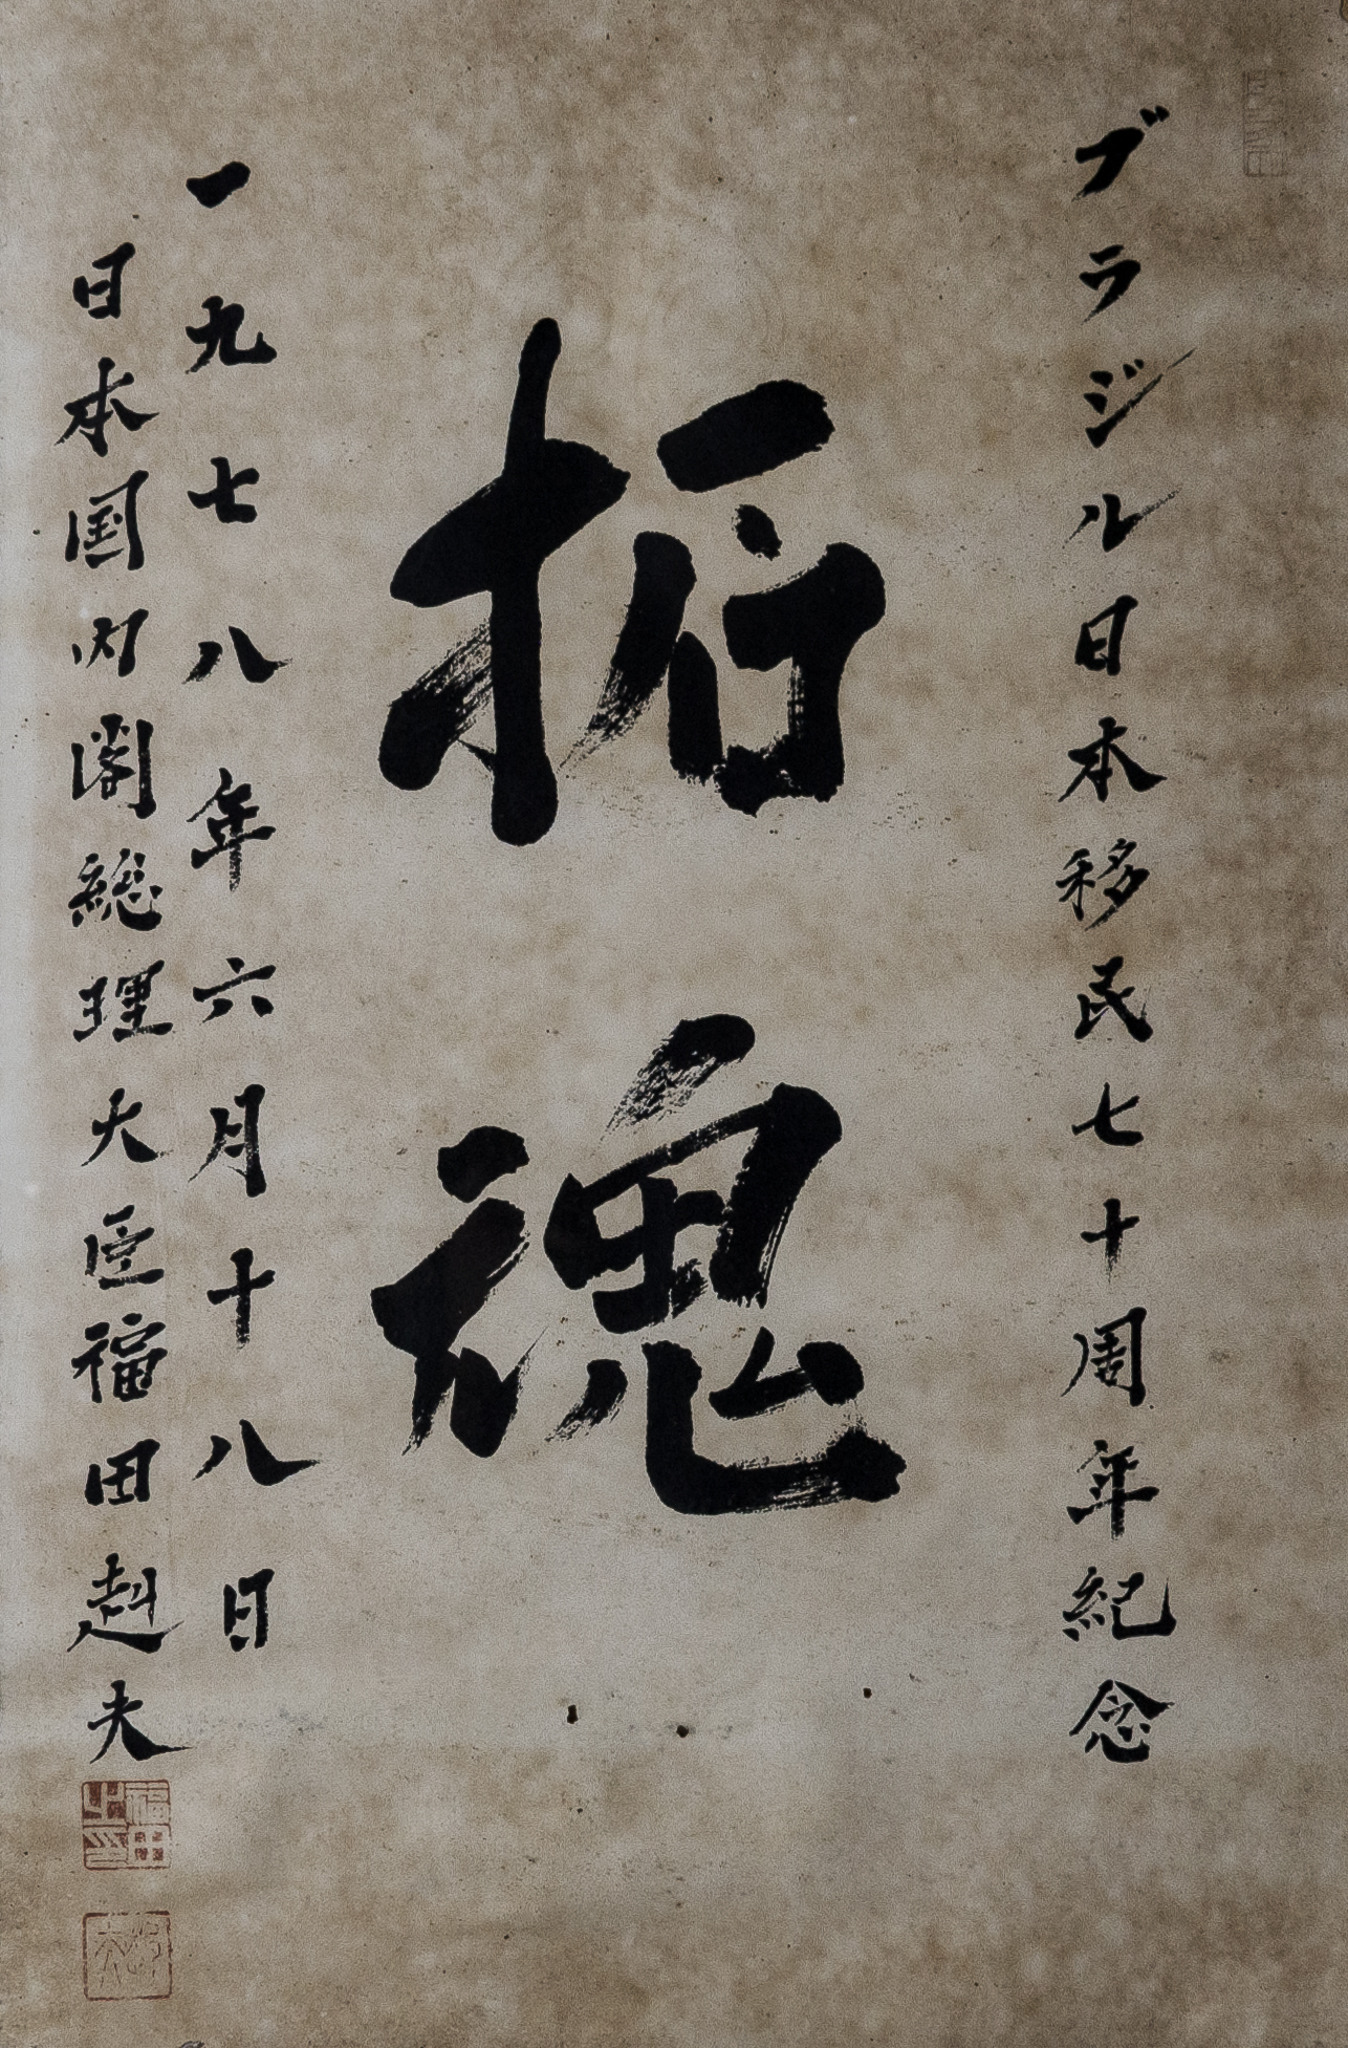 ブラジル日本移民七十周年紀念
拓魂
一九七八年六月十八日
日本国内閣総理大臣福田赳夫
福田之印